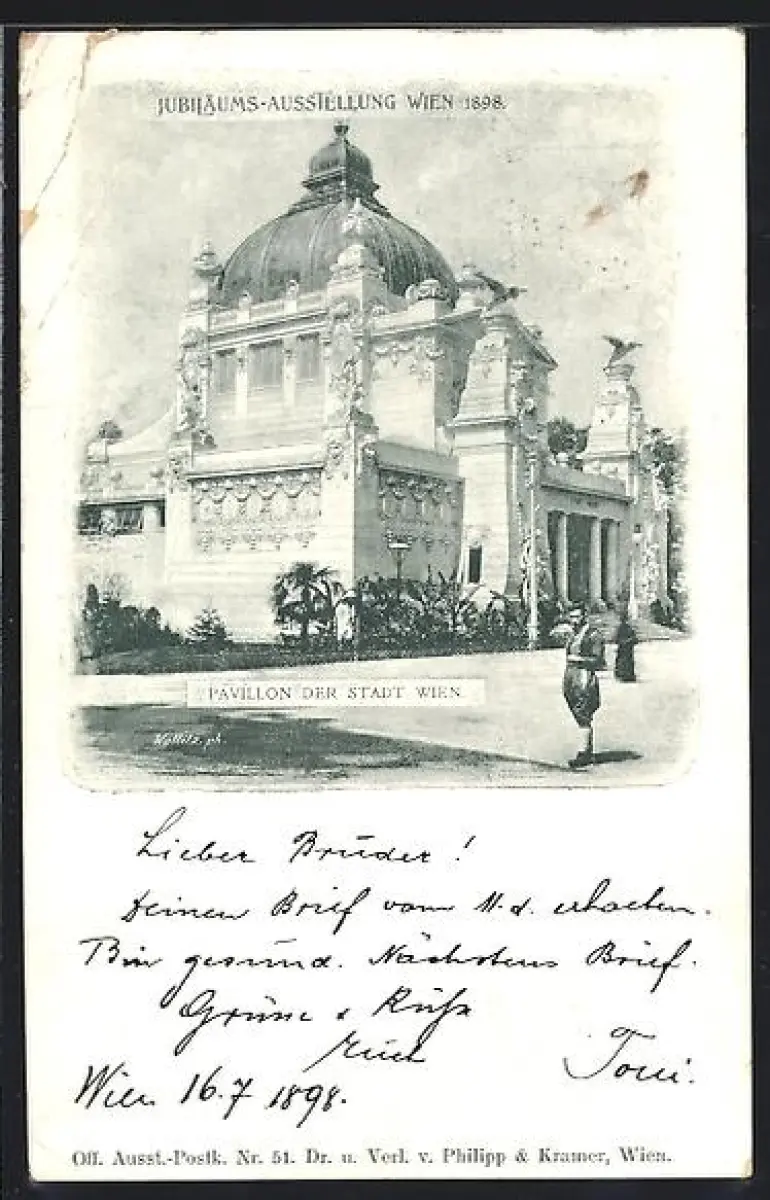 JUBILÄUMS-AUSSTELLUNG WIEN 1898.
PAVILLON DER STADT WIEN.
ph.
Lieber Bruder!
Deinen Brief vom 11. d. erhalten.
Bin gesund. Nächstens Brief.
Grüsse & Küsse
Wien 16.7 1898.
Toni.
Off. Ausst.-Postk. Nr. 51. Dr. u. Verl. v. Philipp & Kramer, Wien.